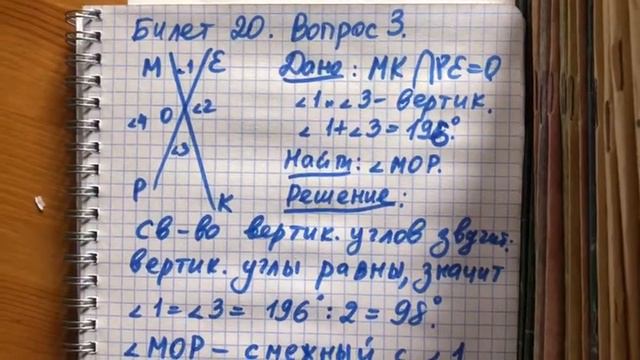 Билет 20. Вопрос 3.
M ∠1 E
∠4 O ∠2
∠3
P K
Дано: MK ⋂ PE = O
∠1 и ∠3 - вертик.
∠1+∠3 = 196°.
Найти: ∠MOP.
Решение:
Св-во вертик. углов звучит:
вертик. углы равны, значит
∠1 = ∠3 = 196° : 2 = 98°.
∠MOP - смежный с ∠1